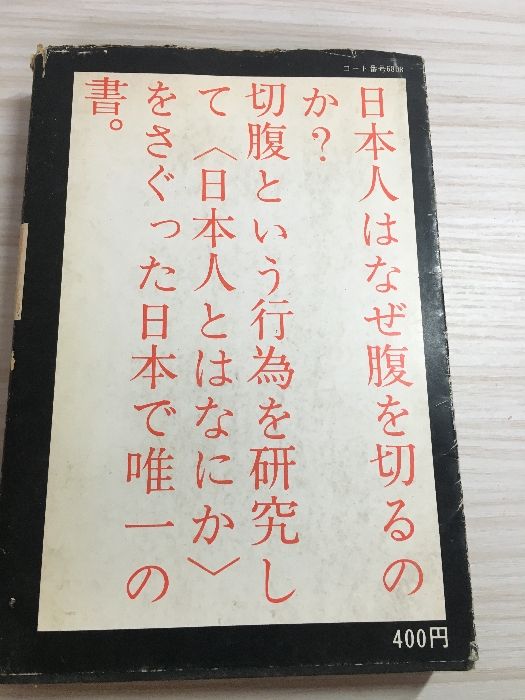 コード番号6808
日本人はなぜ腹を切るの
か?
切腹という行為を研究し
て〈日本人とはなにか〉
をさぐった日本で唯一の
書。
400円